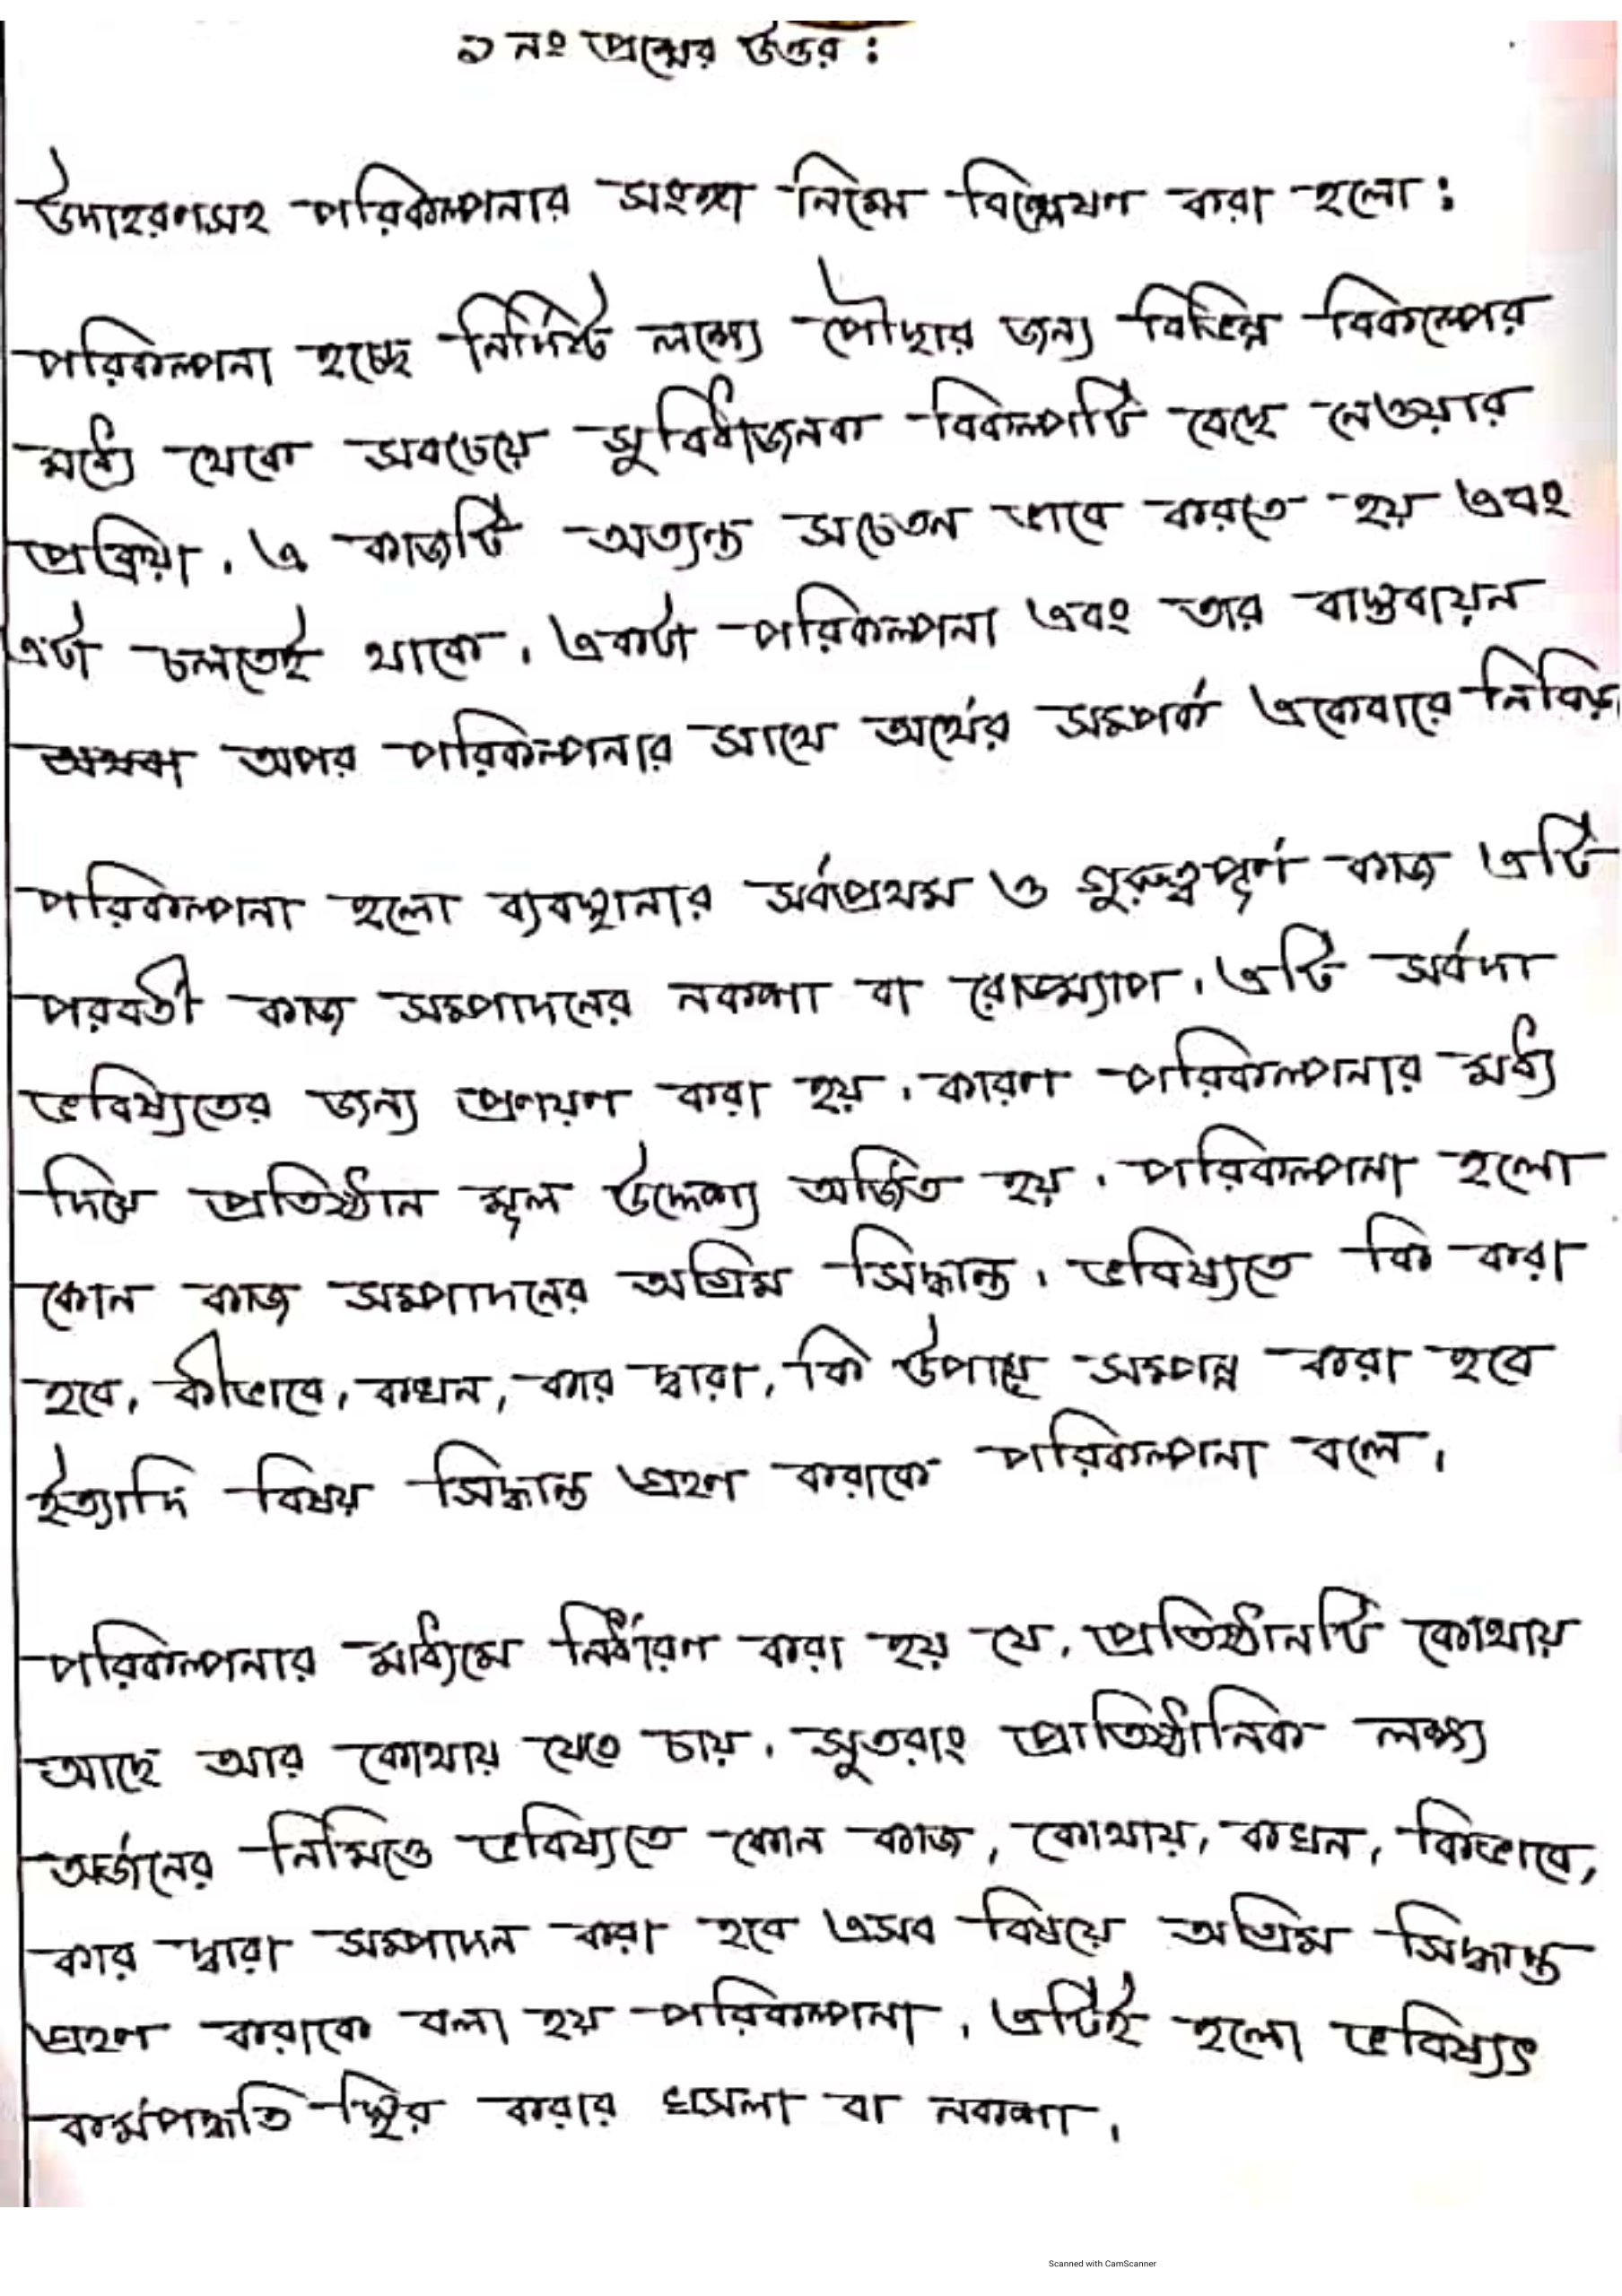 ১ নং প্রশ্নের উত্তর :
উদাহরণসহ পরিকল্পনার সংজ্ঞা নিম্নে বিশ্লেষণ করা হলো :
পরিকল্পনা হচ্ছে নির্দিষ্ট লক্ষ্যে পৌছার জন্য বিভিন্ন বিকল্পের
মধ্যে থেকে সবচেয়ে সুবিধাজনক বিকল্পটি বেছে নেওয়ার
প্রক্রিয়া। এ কাজটি অত্যন্ত সচেতন ভাবে করতে হয় এবং
এটা চলতেই থাকে। একটা পরিকল্পনা এবং তার বাস্তবায়ন
অপর পরিকল্পনার সাথে অর্থের সম্পর্ক একেবারে নিবিড়।
পরিকল্পনা হলো ব্যবস্থানার সর্বপ্রথম ও গুরুত্বপূর্ণ কাজ এটি
পরবর্তী কাজ সম্পাদনের নকশা বা রোডম্যাপ। এটি সর্বদা
ভবিষ্যিতের জন্য প্রণয়ণ করা হয়। কারণ পরিকল্পনার মধ্য
দিয়ে প্রতিষ্ঠান মূল উদ্দেশ্য অর্জিত হয়। পরিকল্পনা হলো
কোন কাজ সম্পাদনের অগ্রিম সিদ্ধান্ত। ভবিষ্যতে কি করা
হবে, কীভাবে, কখন, কার দ্বারা, কি উপায়ে সম্পন্ন করা হবে
ইত্যাদি বিষয় সিদ্ধান্ত গ্রহণ করাকে পরিকল্পনা বলে।
পরিকল্পনার মাধ্যমে নির্ধারণ করা হয় যে, প্রতিষ্ঠানটি কোথায়
আছে আর কোথায় যেতে চায়। সুতরাং প্রাতিষ্ঠানিক লক্ষ্য
অর্জনের নিমিত্তে ভবিষ্যতে কোন কাজ, কোথায়, কখন, কিভাবে,
কার দ্বারা সম্পাদন করা হবে এসব বিষয়ে অগ্রিম সিদ্ধান্ত
গ্রহণ করাকে বলা হয় পরিকল্পনা। এটিই হলো ভবিষ্যৎ
কর্মপদ্ধতি স্থির করার খসেলা বা নকশা।
Scanned with CamScanner